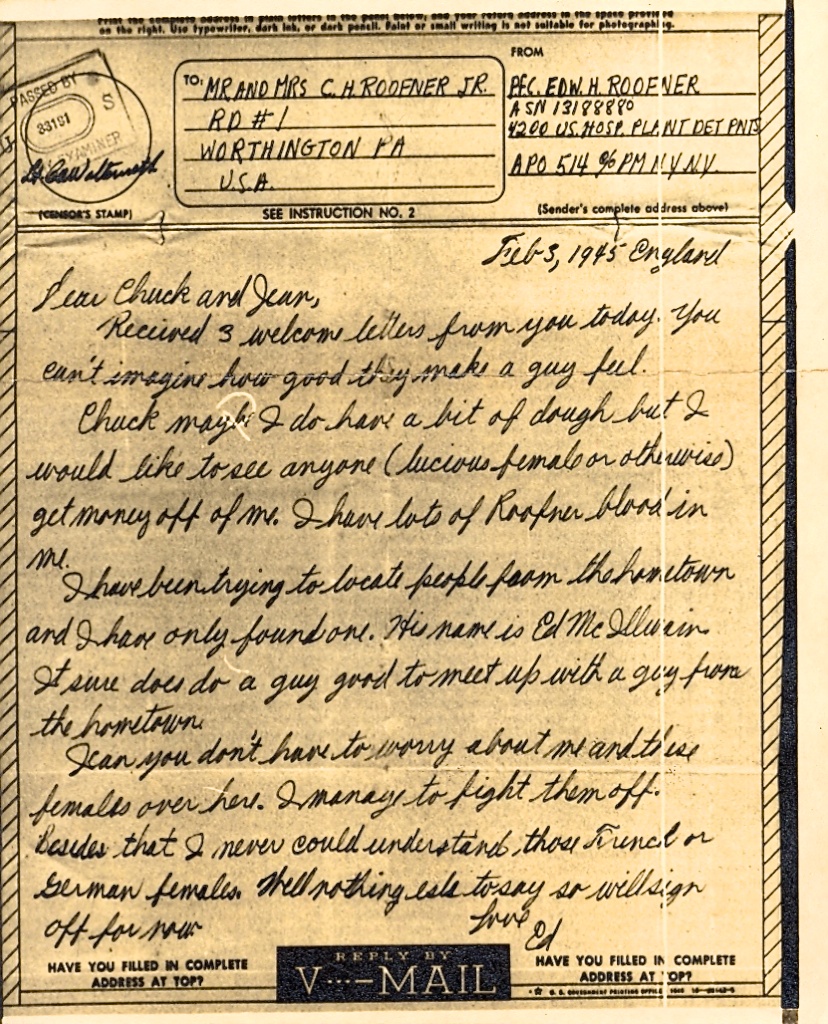 Print the complete address in plain letters in the panel below, and your return address in the space provided
on the right. Use typewriter, dark ink, or dark pencil. Paint or small writing is not suitable for photographing.
PASSED BY
S
33181
EXAMINER
(CENSOR'S STAMP)
TO: MR AND MRS C. H. ROOFNER JR.
RD #1
WORTHINGTON PA
U.S.A.
SEE INSTRUCTION NO. 2
FROM
PFC. EDW. H. ROOFNER
ASN 13188880
4200 US. HOSP. PLANT DET PNTS
APO 514 % PM N.Y. N.Y.
(Sender's complete address above)
Feb 3, 1945 England
Dear Chuck and Jean,
Received 3 welcome letters from you today. You
can't imagine how good they make a guy feel.
Chuck maybe I do have a bit of dough but I
would like to see anyone (lucious female or otherwise)
get money off of me. I have lots of Roofner blood in
me.
I have been trying to locate people from the hometown
and I have only found one. His name is Ed McIllwain.
It sure does do a guy good to meet up with a guy from
the hometown.
Jean you don't have to worry about me and these
females over here. I manage to fight them off.
Besides that I never could understand those French or
German females. Well nothing esle to say so will sign
off for now
Love
Ed
HAVE YOU FILLED IN COMPLETE
ADDRESS AT TOP?
REPLY BY
V···—MAIL
HAVE YOU FILLED IN COMPLETE
ADDRESS AT TOP?
U. S. GOVERNMENT PRINTING OFFICE